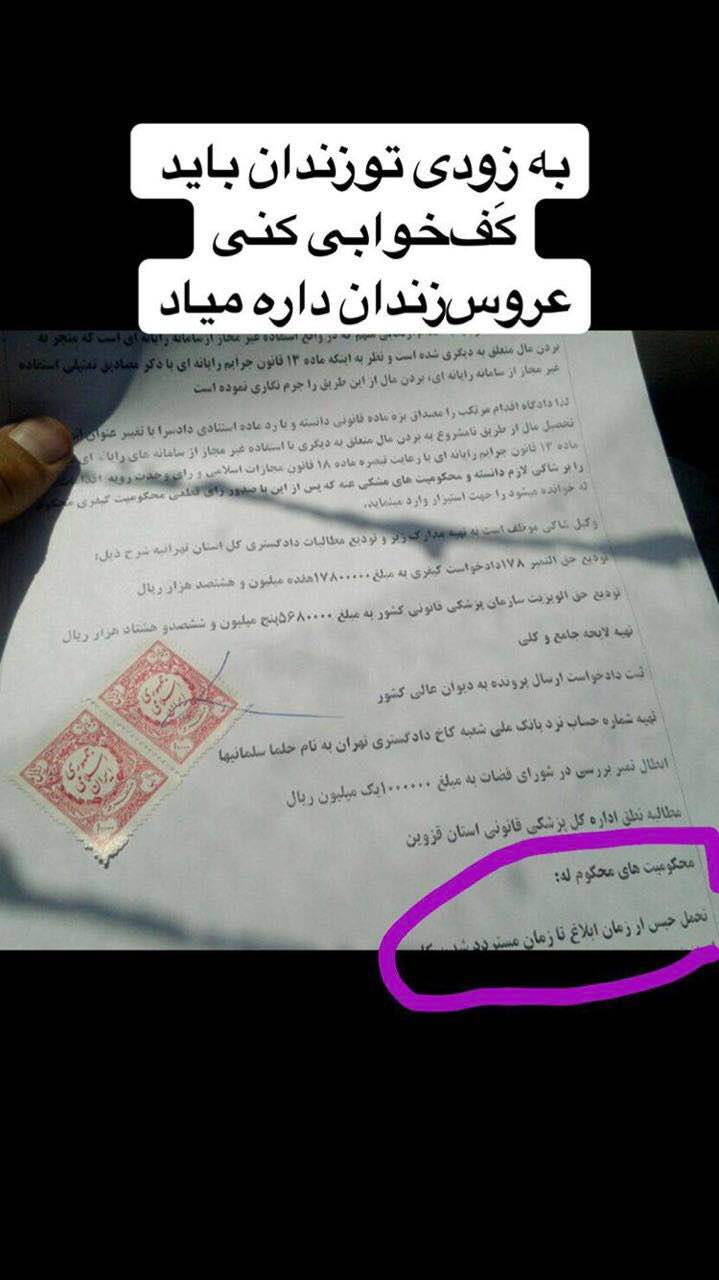 به زودی تو زندان باید
کَف‌خوابی کنی
عروس‌زندان داره میاد
در واقع استفاده غیر مجاز از سامانه رایانه ای است که منجر به
بردن مال متعلق به دیگری شده است و نظر به اینکه ماده ۱۳ قانون جرایم رایانه ای با ذکر مصادیق تمثیلی استفاده
غیر مجاز از سامانه رایانه ای، بردن مال از این طریق را جرم نگاری نموده است
لذا دادگاه اقدام مرتکب را مصداق بزه ماده قانونی دانسته و با رد ماده استنادی دادسرا با تغییر عنوان
تحصیل مال از طریق نامشروع به بردن مال متعلق به دیگری با استفاده غیر مجاز از سامانه های رایانه ای
ماده ۱۳ قانون جرایم رایانه ای با رعایت تبصره ماده ۱۸ قانون مجازات اسلامی و رای وحدت رویه
را بر شاکی لازم دانسته و محکومیت های مشکی عنه که پس از این با صدور رای قطعی محکومیت کیفری محکوم
له خوانده میشود را جهت استبراز وارد مینماید.
وکیل شاکی موظف است به تهیه مدارک زیر و تودیع مطالبات دادگستری کل استان تهران به شرح ذیل:
تودیع حق التمبر ۱۷۸دادخواست کیفری به مبلغ ۱۷۸۰۰۰۰۰هفده میلیون و هشتصد هزار ریال
تودیع حق الویزیت سازمان پزشکی قانونی کشور به مبلغ ۵۶۸۰۰۰۰پنج میلیون و ششصدو هشتاد هزار ریال
تهیه لایحه جامع و کلی
ثبت دادخواست ارسال پرونده به دیوان عالی کشور
تهیه شماره حساب نزد بانک ملی شعبه کاخ دادگستری تهران به نام حلما سلمانیها
ابطال تمبر بررسی در شورای قضات به مبلغ ۱۰۰۰۰۰۰یک میلیون ریال
مطالبه نطق اداره کل پزشکی قانونی استان قزوین
محکومیت های محکوم له:
تحمل حبس از زمان ابلاغ تا زمان مسترد شدن
جمهوری
اسلامی
ایران
جمهوری
اسلامی
ایران